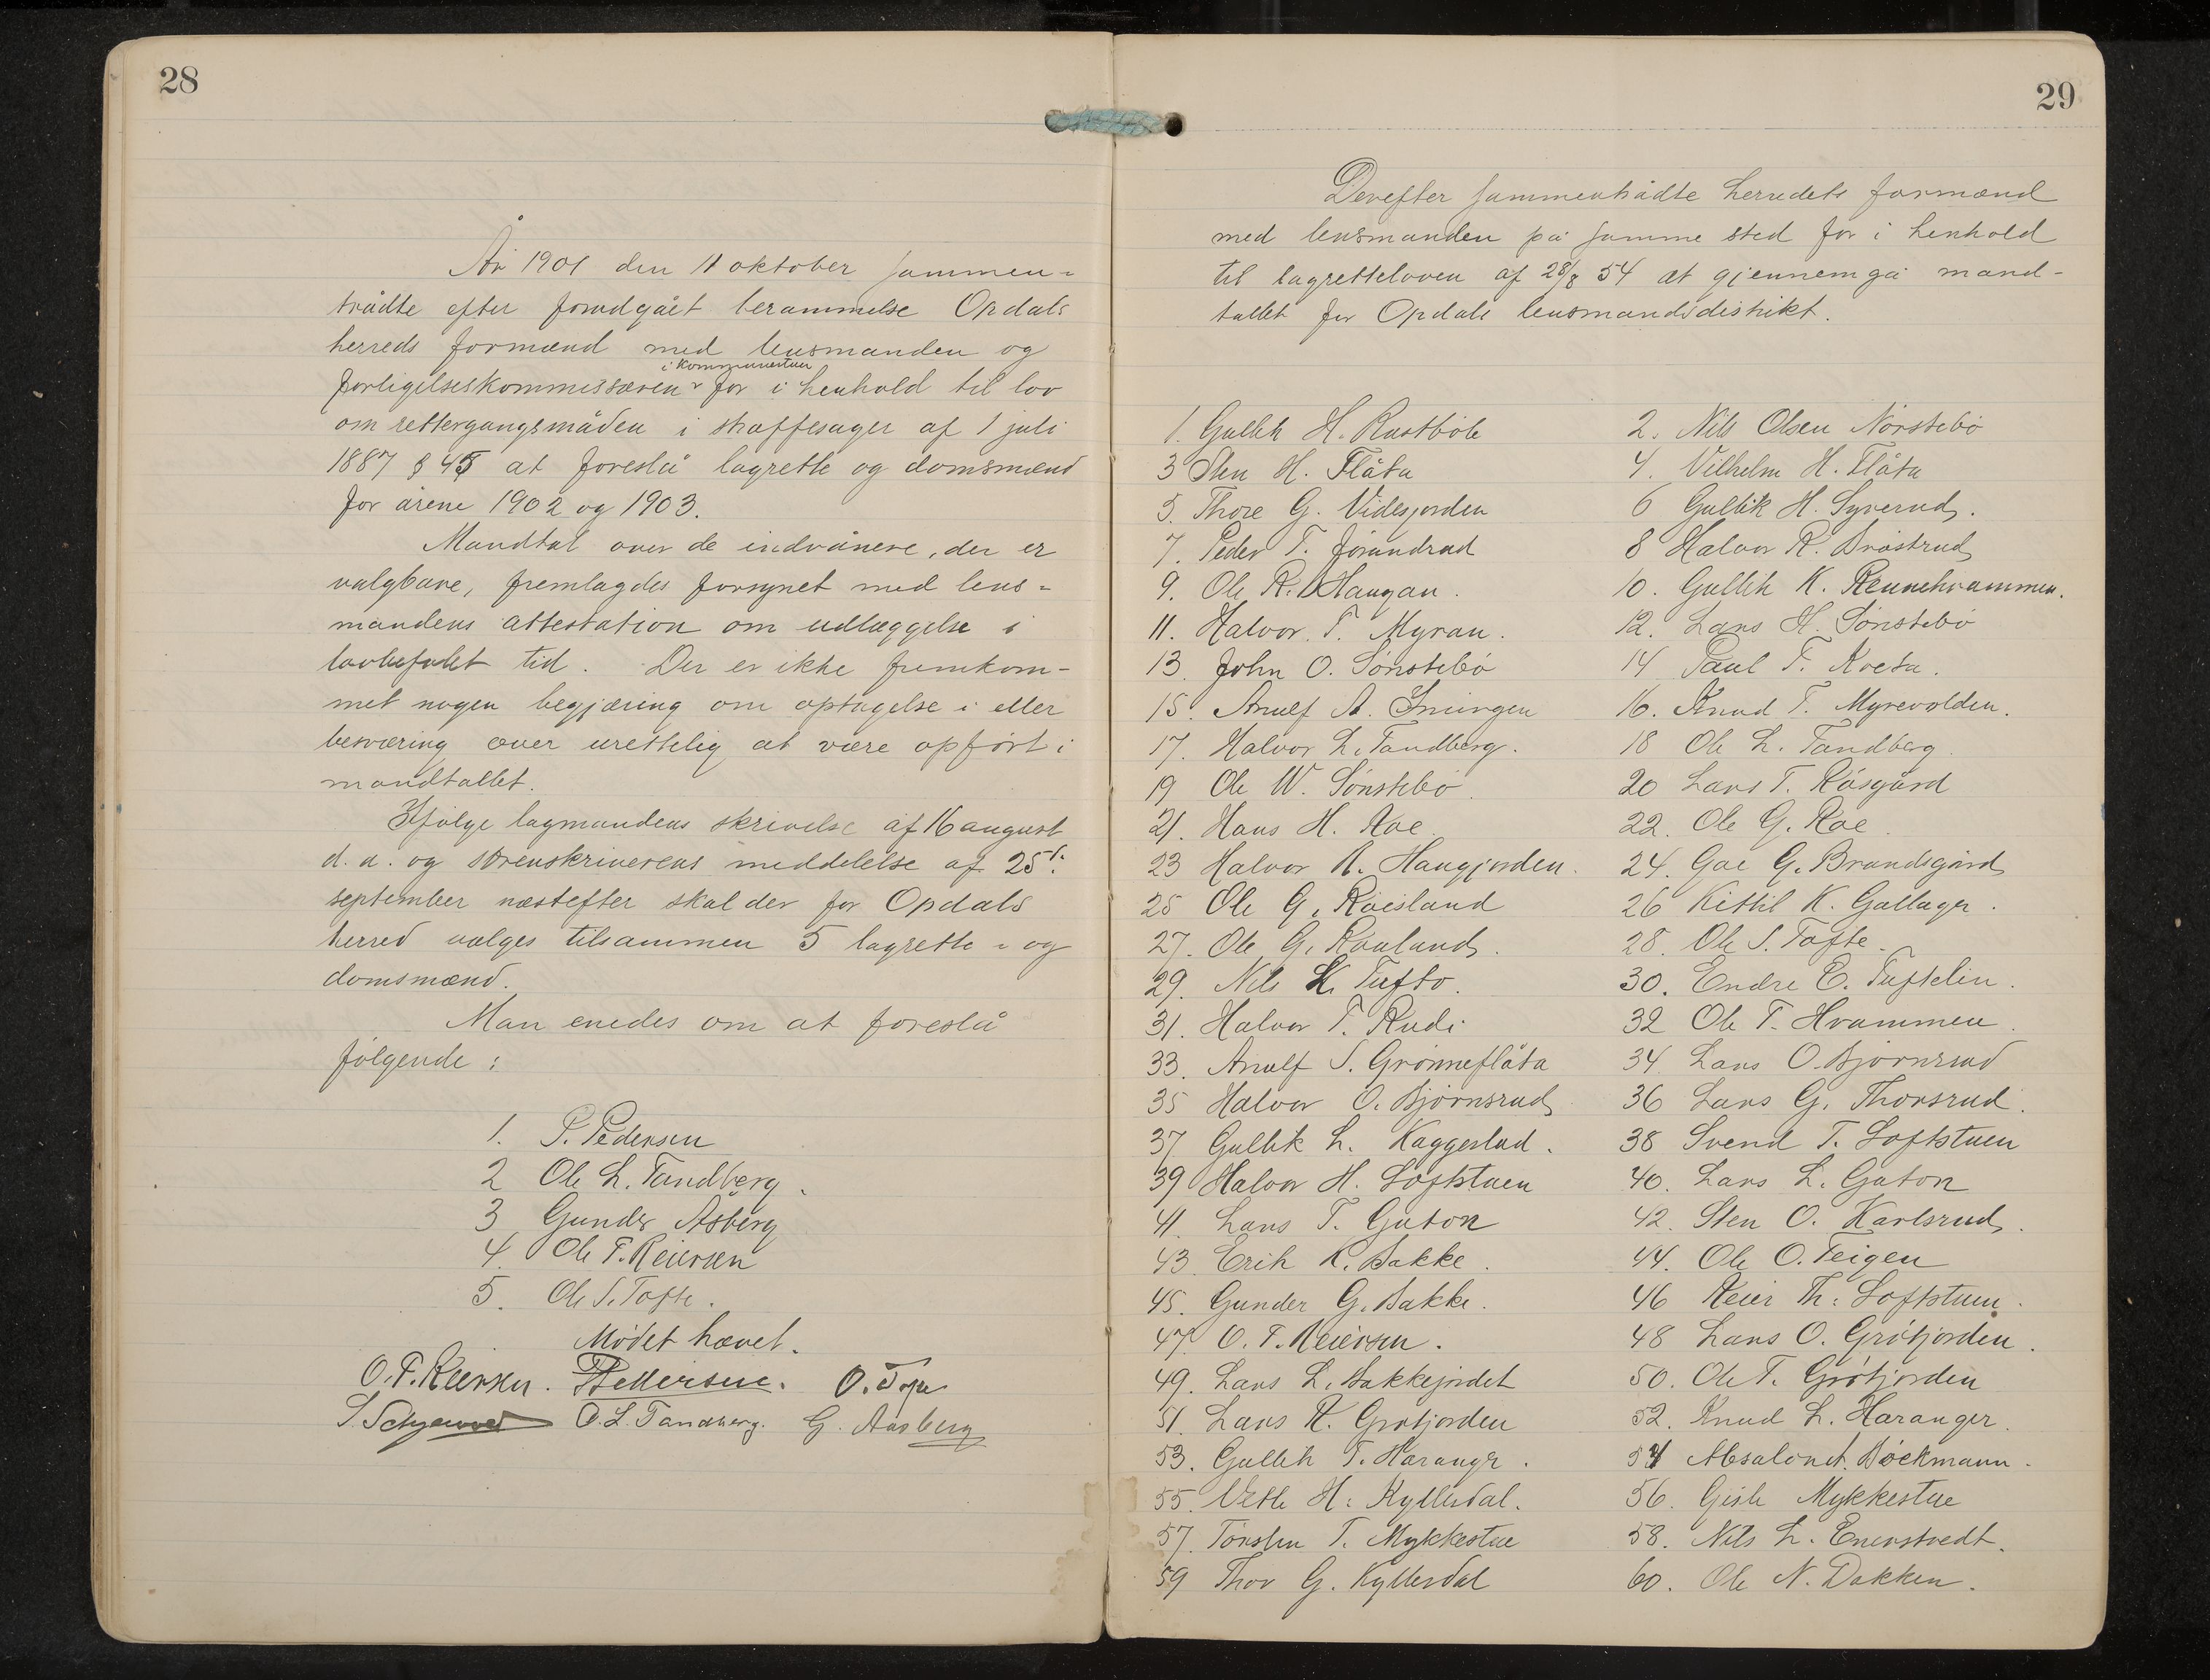 28
År 1901 den 11 oktober sammen-
trådte efter forudgået berammelse Opdals
herreds formænd med lensmanden og
i kommunestuen
forligelseskommissæren for i henhold til lov
om rettergangsmåden i straffesager af 1 juli
1887 § 45 at foreslå lagrette og domsmænd
for årene 1902 og 1903.
Mandtal over de indvånere, der er
valgbare, fremlagdes forsynet med lens-
mandens attestation om udlæggelse i
lovbefalet tid. Der er ikke fremkom-
met nogen begjæring om optagelse i eller
besværing over urettelig at være opført i
mandtallet.
Ifølge lagmandens skrivelse af 16 august
d. a. og sorenskriverens meddelelse af 25de
september næstefter skal der for Opdals
herred vælges tilsammen 5 lagrette- og
domsmænd.
Man enedes om at foreslå
følgende:
1. P. Pedersen
2 Ole L. Tandberg.
3 Gunder Åsberg
4. Ole T. Reiersen
5. Ole S. Tofte.
Mødet hævet.
O. T. Reiersen. P Pedersen. O. Tofte
O. L. Tandberg. G. Aasberg
29
Derefter sammentrådte herredets formænd
med lensmanden på samme sted for i henhold
til lagretteloven af 28/8 54 at gjennemgå mand-
tallet for Opdals lensmandsdistrikt.
1. Gullik H. Rustbøle 2. Nils Olsen Nørstebø
3 Sten H. Flåta 4. Vilhelm H. Flåta
5. Thore G. Videsjorden 6 Gullik H. Syverud.
7. Peder T. Jørandrud 8 Halvor R. Brøstrud
9. Ole R. Haugan. 10. Gullik K. Rennehvammen.
11. Halvor T. Myran. 12. Lars H. Sønstebø
13. John O. Sønstebø 14 Paul T. Kveta.
15. Arnulf A. 16. Knud T. Myrevolden.
17. Halvor L. Tandberg. 18 Ole L. Tandberg.
19 Ole W. Sønstebø. 20 Lars T. Råsgård
21. Hans H. Roe. 22. Ole G. Roe.
23 Halvor A. Haugjorden. 24. Goe G. Brandsgård
25 Ole G. Røisland 26 Kittil K. Gallager.
27. Ole G. Rauland. 28. Ole S. Tofte.
29. Nils K. Tufto. 30. Endre E. Tuftelin.
31. Halvor T. Rudi 32 Ole T. Hvammen.
33. Arnulf S. Grønneflåta 34 Lars O. Bjørnsrud
35 Halvor O. Bjørnsrud 36 Lars G. Thorsrud.
37 Gullik L. Kaggestad. 38 Svend T. Loftstuen
39 Halvor H. Loftstuen 40. Lars L. Gaton
41. Lars T. Gaton 42. Sten O. Karlsrud.
43. Erik K. Bakke. 44. Ole O. Teigen
45. Gunder G. Bakke. 46 Reier Th. Loftstuen.
47. O. T. Reiersen. 48 Lars O. Grøtjorden.
49. Lars L. Bakkejordet 50. Ole T. Grøtjorden
51. Lars K. Grøtjorden 52. Knud L. Haranger.
53. Gullik T. Haranger. 54 Absalon A. Bøckmann.
55. Vetle H. Kyllesdal. 56. Gisle Mykkestue
57. Torsten T. Mykkestue 58. Nils L. Enerstvedt.
59 Thor G. Kyllesdal 60. Ole N. Dokken.